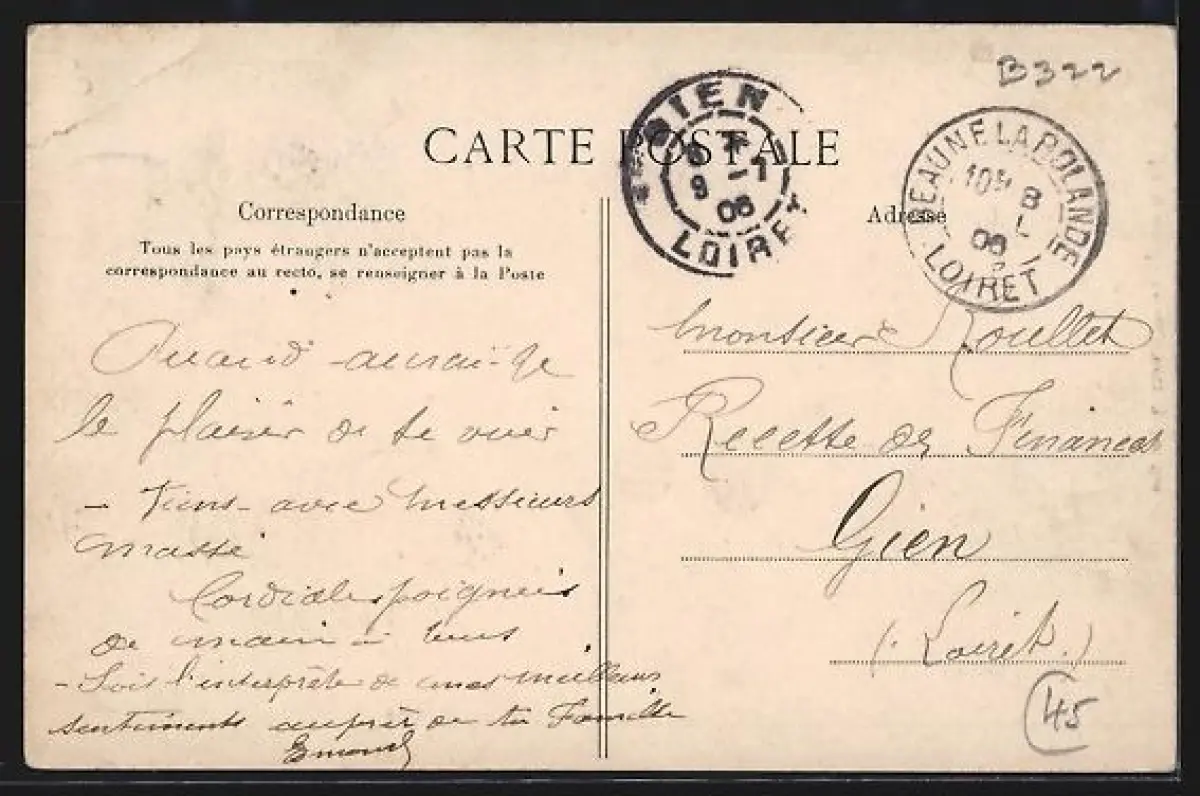 B322
CARTE POSTALE
GIEN
9 -1
06
LOIRET
BEAUNE LA ROLANDE
10H 8
1
06
LOIRET
Correspondance
Tous les pays étrangers n'acceptent pas la
correspondance au recto, se renseigner à la Poste
Quand aurai-je
le plaisir de te voir
- Viens - avec Messieurs
Massé
Cordiales poignées
de main à tous
- Sois l'interprète de mes meilleurs
sentiments auprès de ta Famille
Adresse
Monsieur Roullet
Recette des Finances
Gien
(: Loiret.)
45